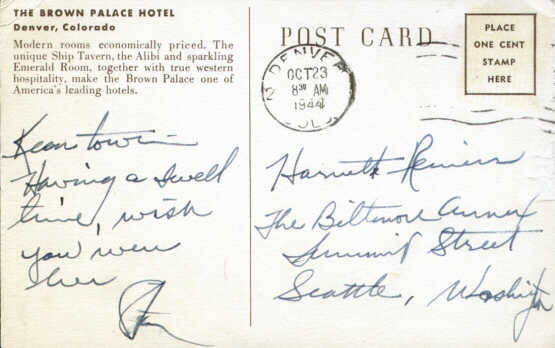 THE BROWN PALACE HOTEL
Denver, Colorado
Modern rooms economically priced. The
unique Ship Tavern, the Alibi and sparkling
Emerald Room, together with true western
hospitality, make the Brown Palace one of
America's leading hotels.
Keen town—
Having a swell
time, wish
you were
here
POST CARD
PLACE
ONE CENT
STAMP
HERE
DENVER
OCT 23
8 30 AM
1944
COLO.
Harriett
The Biltmore Annex
Summit Street
Seattle, Washington